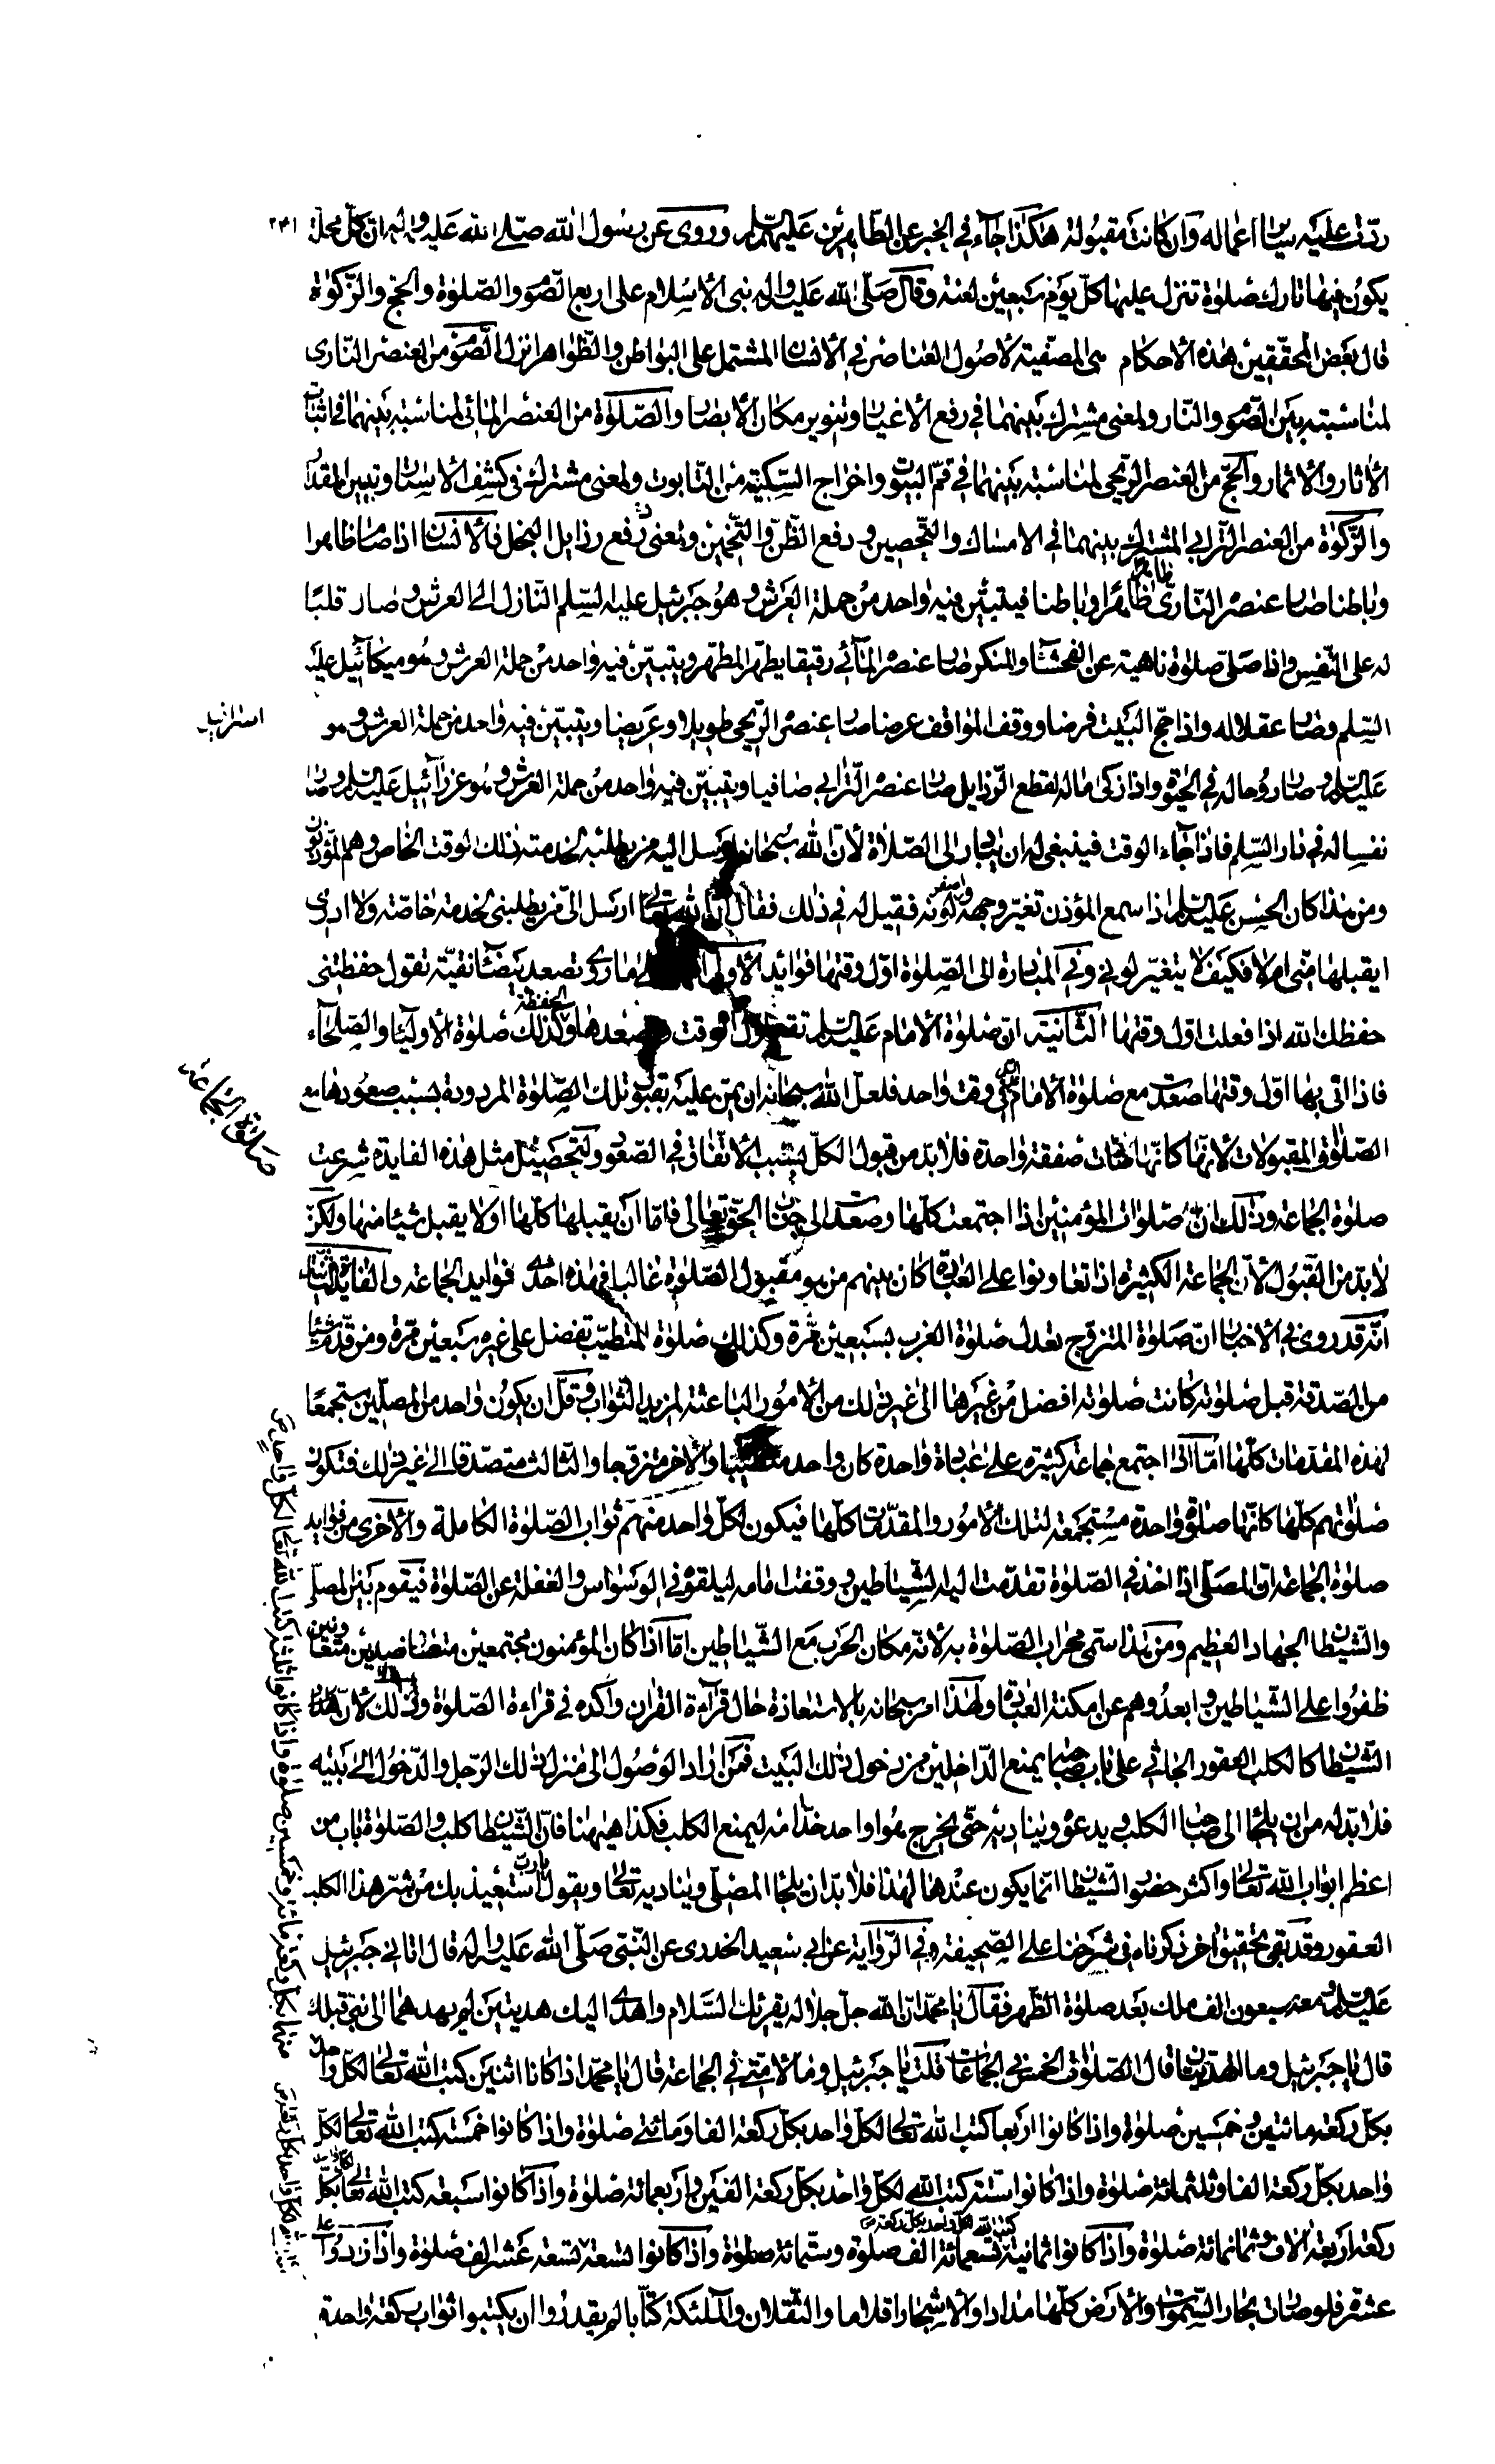 ردّت عليه سائر اعماله وان كانت مقبولة هكذا جاء في الخبر عن الطاهرين عليهم السلام وروى عن رسول الله صلى الله عليه وآله ان كل محلة
٢٣١
يكون فيها تارك صلوة تنزل عليها كل يوم سبعين لعنة وقال صلى الله عليه وآله بنى الاسلام على اربع الصوم والصلوة والحج والزكوة
قال بعض المحققين هذه الاحكام هى المصفية لاصول العناصر في الانسان المشتمل على البواطن والظواهر انزل الصوم من العنصر النارى
لمناسبته بين الصوم والنار ولمعنى مشترك بينهما في رفع الاغيار وتنوير مكان الابصار والصلوة من العنصر المائى لمناسبته بينهما في اثبات
الاثار والاثمار والحج من العنصر الريحى لمناسبة بينهما في قمّ البيوت واخراج السكينة من التابوت ولمعنى مشترك في كشف الاستار وتبيين المقدار
والزكوة من العنصر الترابى المشترك بينهما في الامساك والتحصين و رفع الظن والتخمين ومعنى رفع رذايل البخل فالانسان اذا صام ظاهرا
وباطنا صار عنصر النارى ظاهرا وباطنا فيتبين فيه واحد من حملة العرش وهو جبرئيل عليه السلم النازل الى العرش وصار قلبا
له على النفس واذا صلى صلوة ناهية عن الفحشاء والمنكر صار عنصر المائى رقيقا يطهر المطهر ويتبين فيه واحد من حملة العرش وهو ميكائيل عليه
السلم وصار عقلا له واذا حج البيت فرضا ووقف المواقف عرضا صار عنصر الريحى طويلا وعريضا ويتبين فيه واحد من حملة العرش وهو
اسرافيل
عليه السلم وصار روحا له في الجنة واذا زكى ماله لقطع الرذايل صار عنصر الترابى صافيا ويتبين فيه واحد من حملة العرش وهو عزرائيل عليه السلم وصار
نفسا له في دار السلم فاذا جاء الوقت فينبغى له ان يبادر الى الصلاة لان الله سبحانه ارسل اليه من يطلبه لخدمته ذلك الوقت الخاص وهم المؤذنون
ومن هذا كان الحسن عليه السلم اذا سمع المؤذن تغير وجهه واصفر لونه فقيل له في ذلك فقال ان الله تعالى ارسل الى من يطلبنى لخدمة خاصة ولا ادرى
ايقبلها منى ام لا فكيف لا يتغير لونى وفي المبادرة الى الصلوة اول وقتها فوائد الاولى ما روى تصعد بيضاء نقية تقول حفظتنى
حفظك الله اذا فعلت اول وقتها الثانية ان صلوة الامام عليه السلم تقع اول الوقت وتصعدها الحفظة وكذلك صلوة الاوليا والصلحاء
فاذا اتى بها اول وقتها صعدت مع صلوة الامام في وقت واحد فلعل الله سبحانه ان يمن عليه بقبول تلك الصلوة المردودة بسبب صعودها مع
صلوة الجماعة
الصلوة المقبولات لانها كانها صارت صفقة واحدة فلا بد من قبول الكل بسبب الاتفاق في الصعود ولتحصيل مثل هذه الفايدة شرعت
صلوة الجماعة وذلك ان صلوات المؤمنين اذا اجتمعت كلها وصعدت الى جناب الحق تعالى فاما ان يقبلها كلها او لا يقبل شيئا منها ولكن
لا بد من القبول لان الجماعة الكثيرة اذا تعاونوا على العبادة كان بينهم من هو مقبول الصلوة غالبا فهذه احدى فوايد الجماعة والفايدة الثانية
انه قد روى في الاخبار ان صلوة المتزوج تعدل صلوة العزب بسبعين مرة وكذلك صلوة المتطيب تفضل على غيره سبعين مرة ومن قدم شيئا
من الصدقة قبل صلوته كانت صلوته افضل من غيرها الى غير ذلك من الامور الباعثة لمزيد الثواب وقل ان يكون واحد من المصلين مستجمعا
لهذه المقدمات كلها اما اذا اجتمع جماعة كثيرة على عبادة واحدة كان واحد متطيبا والآخر متزوجا والثالث متصدقا الى غير ذلك فتكون
صلوتهم كلها كانها صلوة واحدة مستجمعة لتلك الامور والمقدمات كلها فيكون لكل واحد منهم ثواب الصلوة الكاملة والاخرى من فوايد
صلوة الجماعة ان المصلى اذا اخذ في الصلوة تقدمت اليه الشياطين ووقفت امامه ليلقوه في الوسواس والغفلة عن الصلوة فيقوم بين المصلى
والشيطان الجهاد العظيم ومن هذا سمى محراب الصلوة به لانه مكان الحرب مع الشياطين اما اذا كان المؤمنون مجتمعين متعاضدين متعاونين
ظفروا على الشياطين وابعدوهم عن امكنة العبادة ولهذا امر سبحانه بالاستعاذة حال قراءة القران واكده في قراءة الصلوة وذلك لان هذا
الشيطان كالكلب العقور الجاثى على باب صاحبه يمنع الداخلين من دخول ذلك البيت فمن اراد الوصول الى منزل ذلك الرجل والدخول الى بيته
فلا بد له من ان يلتجأ الى صاحب الكلب ويدعوه ويناديه حتى يخرج هو او احد خدامه ليمنع الكلب فكذا هيهنا فان الشيطان كلب والصلوة باب من
اعظم ابواب الله تعالى واكثر حضور الشيطان انما يكون عندها لهذا فلا بد ان يلتجأ المصلى ويناديه تعالى ويقول يا رب استعيذ بك من شر هذا الكلب
العقور وقد بقى تحقيق اخر ذكرناه في شرحنا على الصحيفة وفي الرواية عن ابى سعيد الخدرى عن النبى صلى الله عليه وآله قال اتانى جبرئيل
عليه السلم ومعه سبعون الف ملك بعد صلوة الظهر فقال يا محمد ان الله جل جلاله يقرئك السلام واهدى اليك هديتين لم يهدهما الى نبى قبلك
قال يا جبرئيل وما الهديتان قال الصلوات الخمس في الجماعات قلت يا جبرئيل وما لامتى في الجماعة قال يا محمد اذا كانا اثنين كتب الله تعالى لكل واحد
بكل ركعة مائتين وخمسين صلوة واذا كانوا اربعا كتب الله تعالى لكل واحد بكل ركعة الفا ومائتى صلوة واذا كانوا خمسة كتب الله تعالى لكل
واحد بكل ركعة الفا وثلثمائة صلوة واذا كانوا ستة كتب الله لكل واحد بكل ركعة الفين واربعمائة صلوة واذا كانوا سبعة كتب الله تعالى لكل واحد بكل
ركعة اربعة الاف وثمانمائة صلوة واذا كانوا ثمانية كتب الله لكل واحد بكل ركعة تسعمائة الف صلوة وستمائة صلوة واذا كانوا تسعة تسعة عشر الف صلوة واذا زادوا على
عشرة فلو صارت بحار السموات والارض كلها مدادا والاشجار اقلاما والثقلان والملئكة كتابا لم يقدروا ان يكتبوا ثواب ركعة واحدة